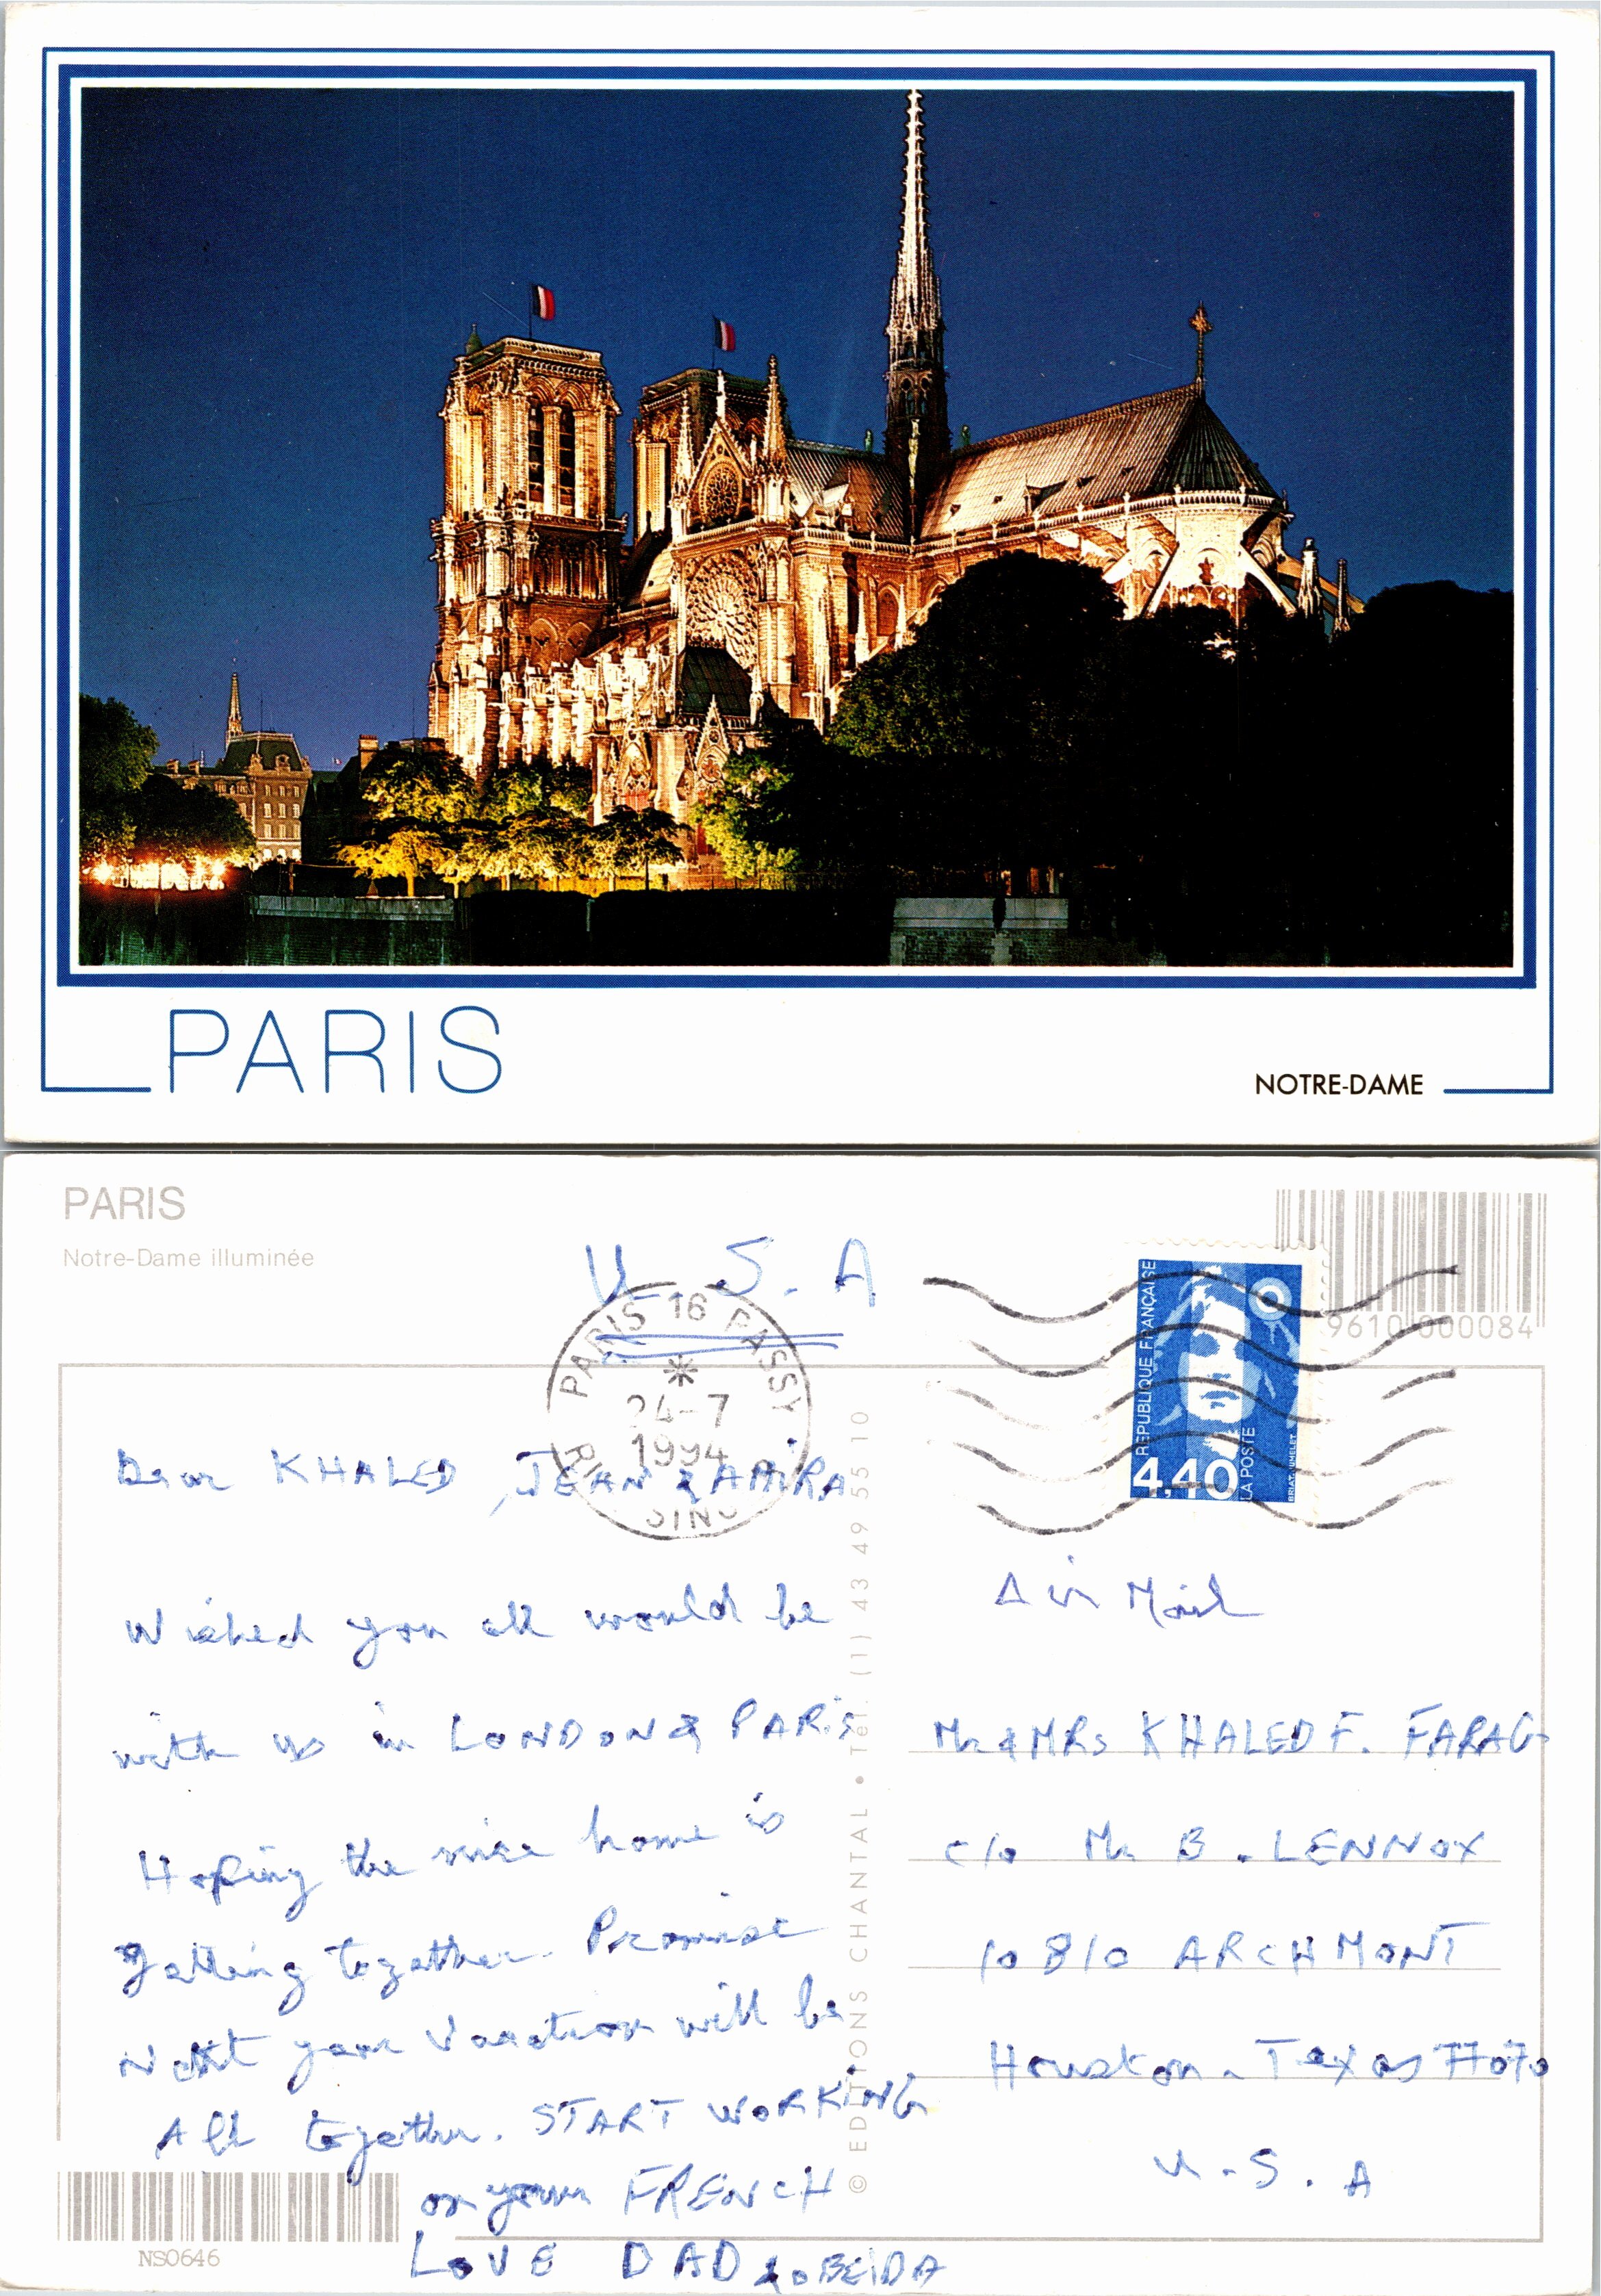 PARIS
NOTRE-DAME
PARIS
Notre-Dame illuminée
U.S.A
PARIS 16 PASSY
24-7
1994
REPUBLIQUE FRANÇAISE
4,40
LA POSTE
BRIAT. JUMELET
9610 000084
Dear KHALED, JEAN & AMIRA
Wished you all would be
with us in LONDON & PARIS
Hoping the nice home is
getting together. Promise
Next year vacation will be
All together. START WORKING
on your FRENCH
LOVE DAD & OBEIDA
© EDITIONS CHANTAL • Tél. (1) 43 49 55 10
Air Mail
Mr & MRs KHALED F. FARAG
c/o Mr B. LENNOX
10810 ARCHMONT
Houston - Texas 77070
U.S.A
NS0646